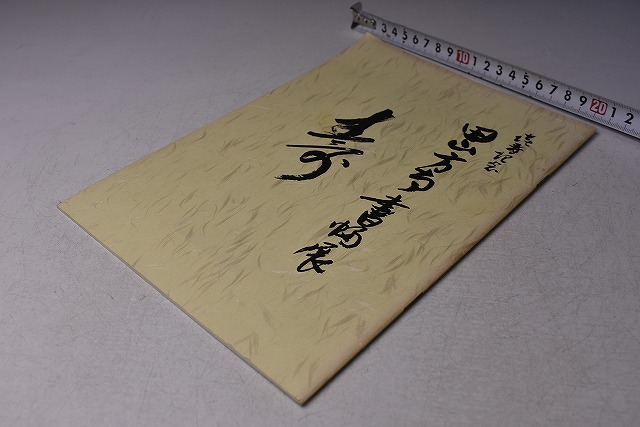 喜寿記念
田山方南書展
寿
3 4 5 6 7 8 9 10 1 2 3 4 5 6 7 8 9 20 1 2